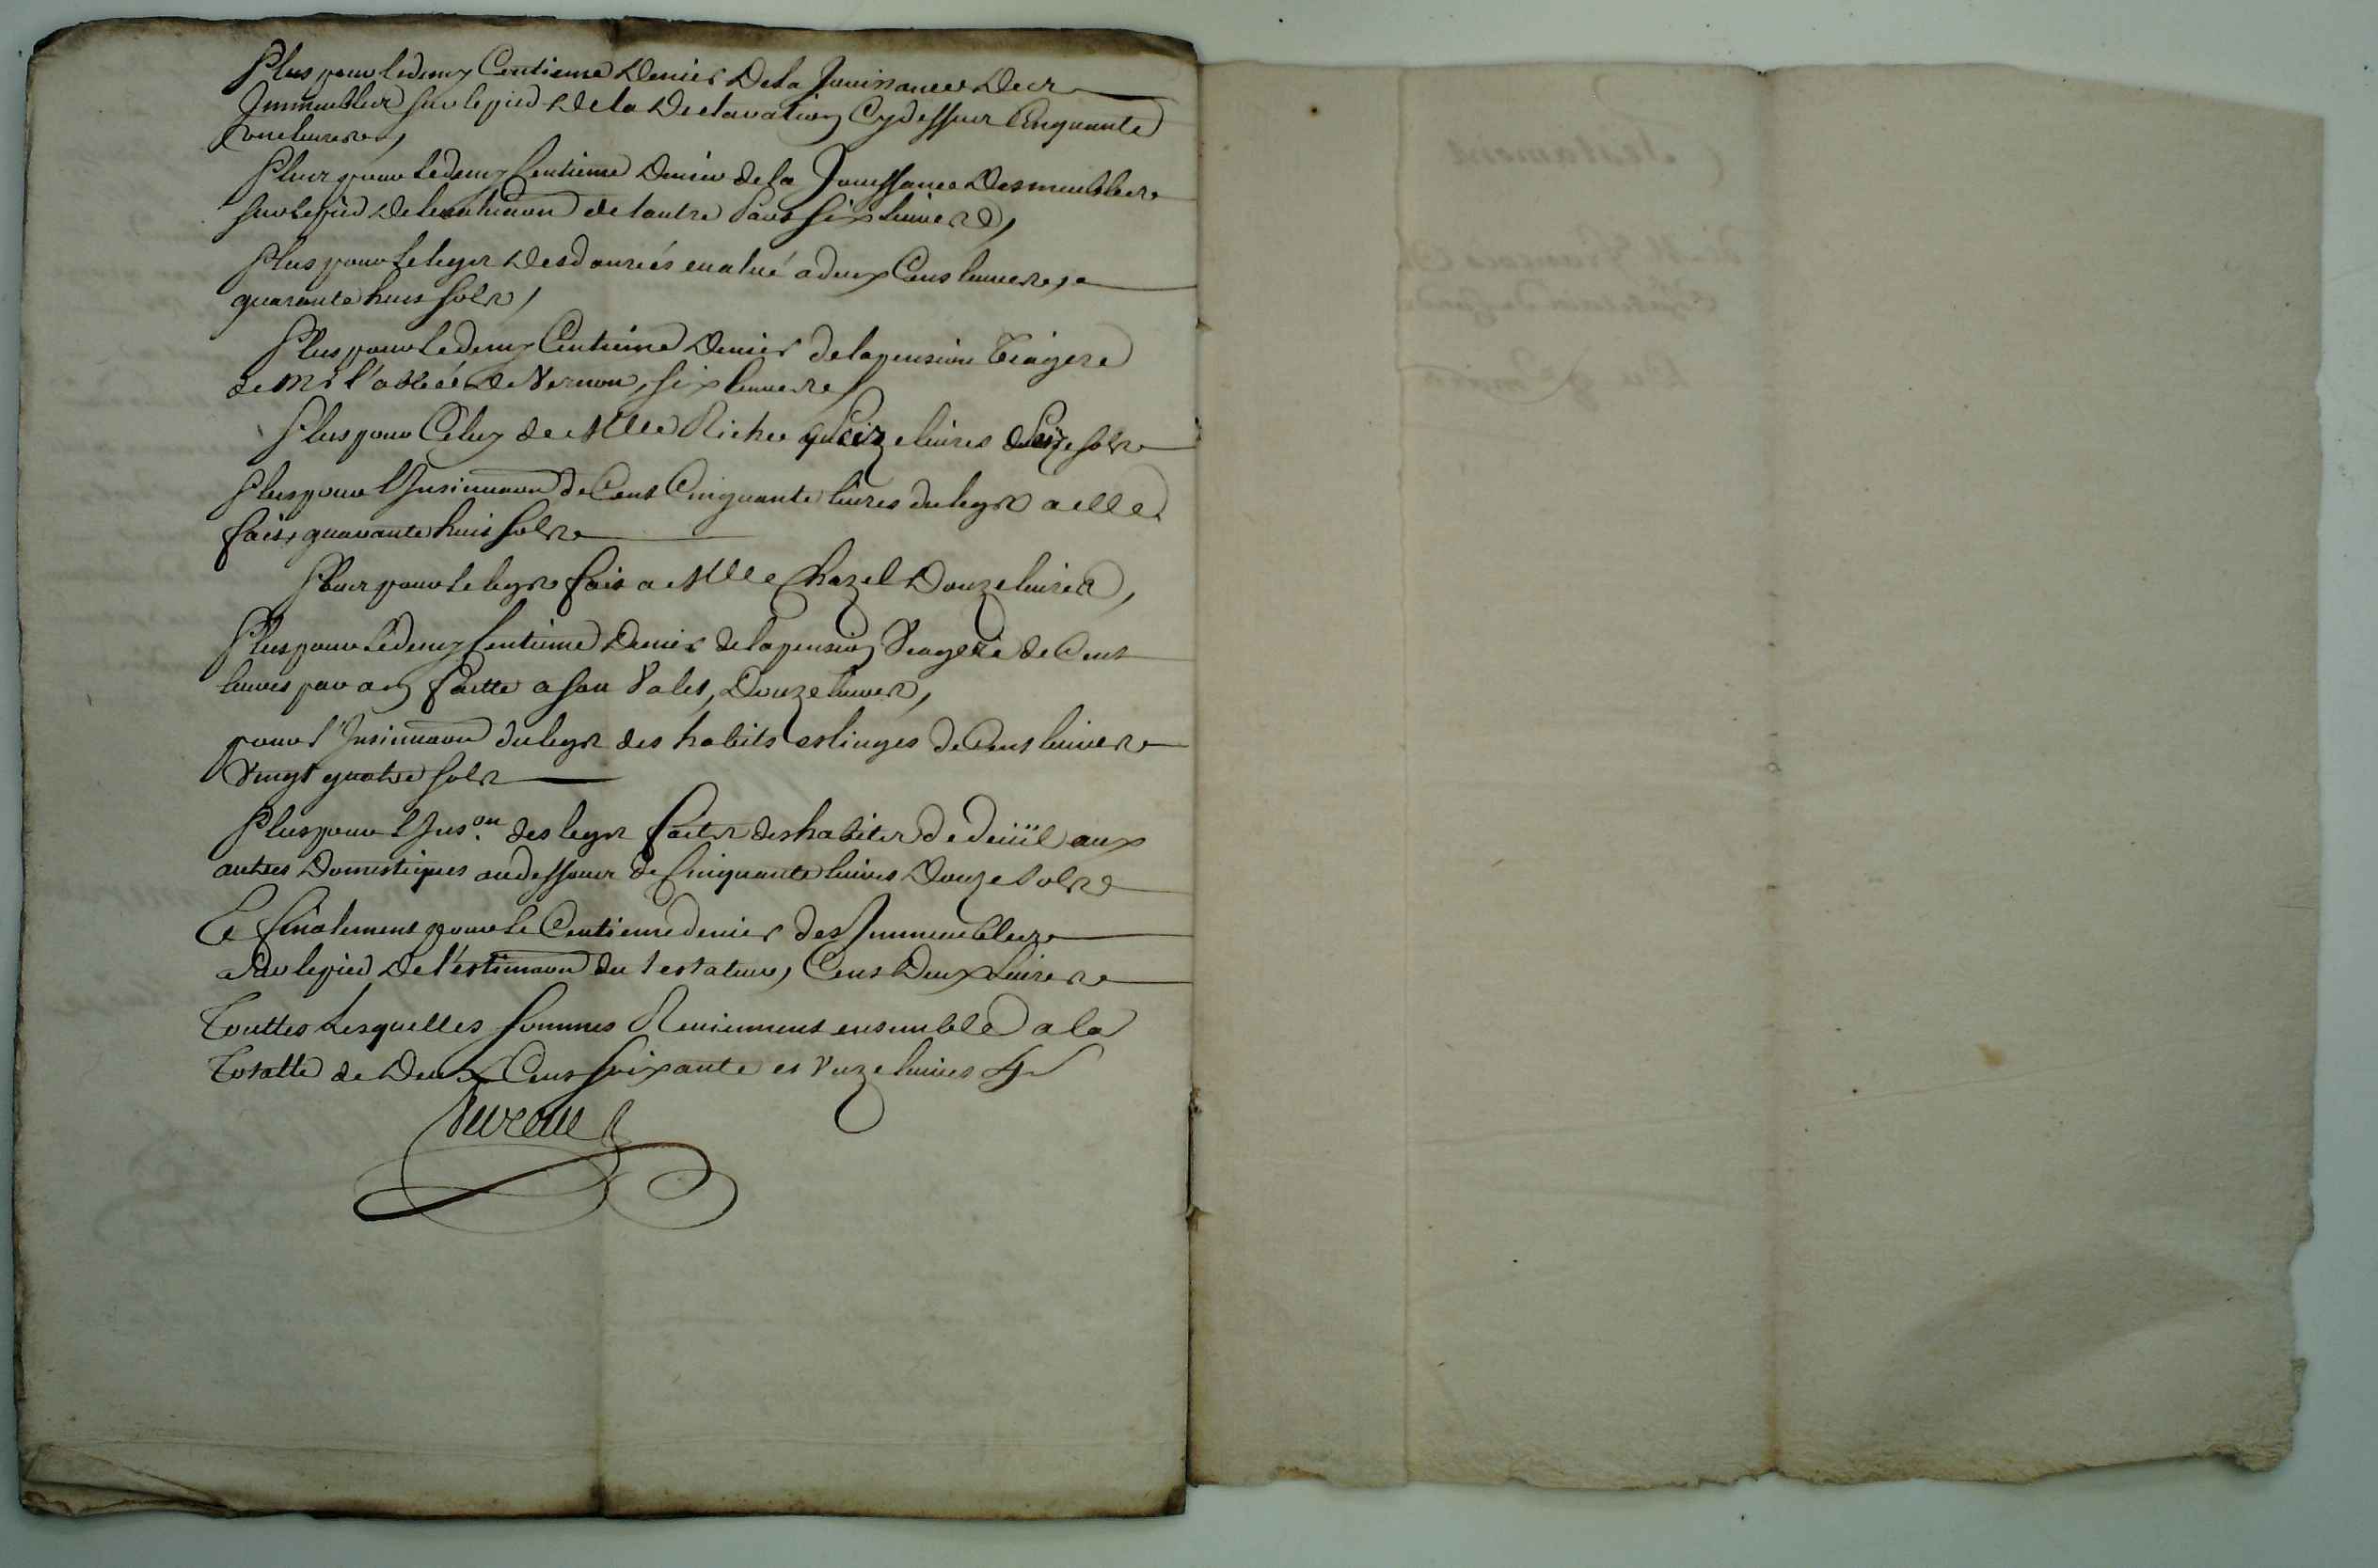 Plus pour le demy Centieme Denier De la Jouissance Des
Immeubles sur le pied De la Declaration Cy dessus Cinquante
onze livres,
Plus pour le demy Centieme Denier de la Jouissance Des meubles
sur le pied De l'estimaon de l'autre part six livres,
Plus pour le legs Des danrées evalué a deux Cens livres,
quarante huit sols,
Plus pour le demy Centieme Denier de la pension Viagere
de Mr l'abbé de Vernon, six livres
Plus pour Celuy de Mlle Riche seize livres seize sols
Plus pour l'Insinuaon de Cent Cinquante livres du legs a elle
fait, quarante huit sols
Plus pour le legs fait a Mlle Chazel Douze livres,
Plus pour le demy Centieme Denier de la pension Viagere de Cent
livres par an faitte a son Valet, Douze livres,
pour l'Insinuaon du legs des habits et linges de Cent livres
Vingt quatre sols
Plus pour l'Inson des legs faits des habits de deüil aux
autres Domestiques au dessous de Cinquante livres Douze sols
Et finalement pour le Centieme denier des Immeubles
sur le pied De l'estimaon du testateur, Cent Deux livres
Touttes Lesquelles sommes Reviennent ensemble a la
Totalle de Deux Cens soixante et unze livres 4s
Testament